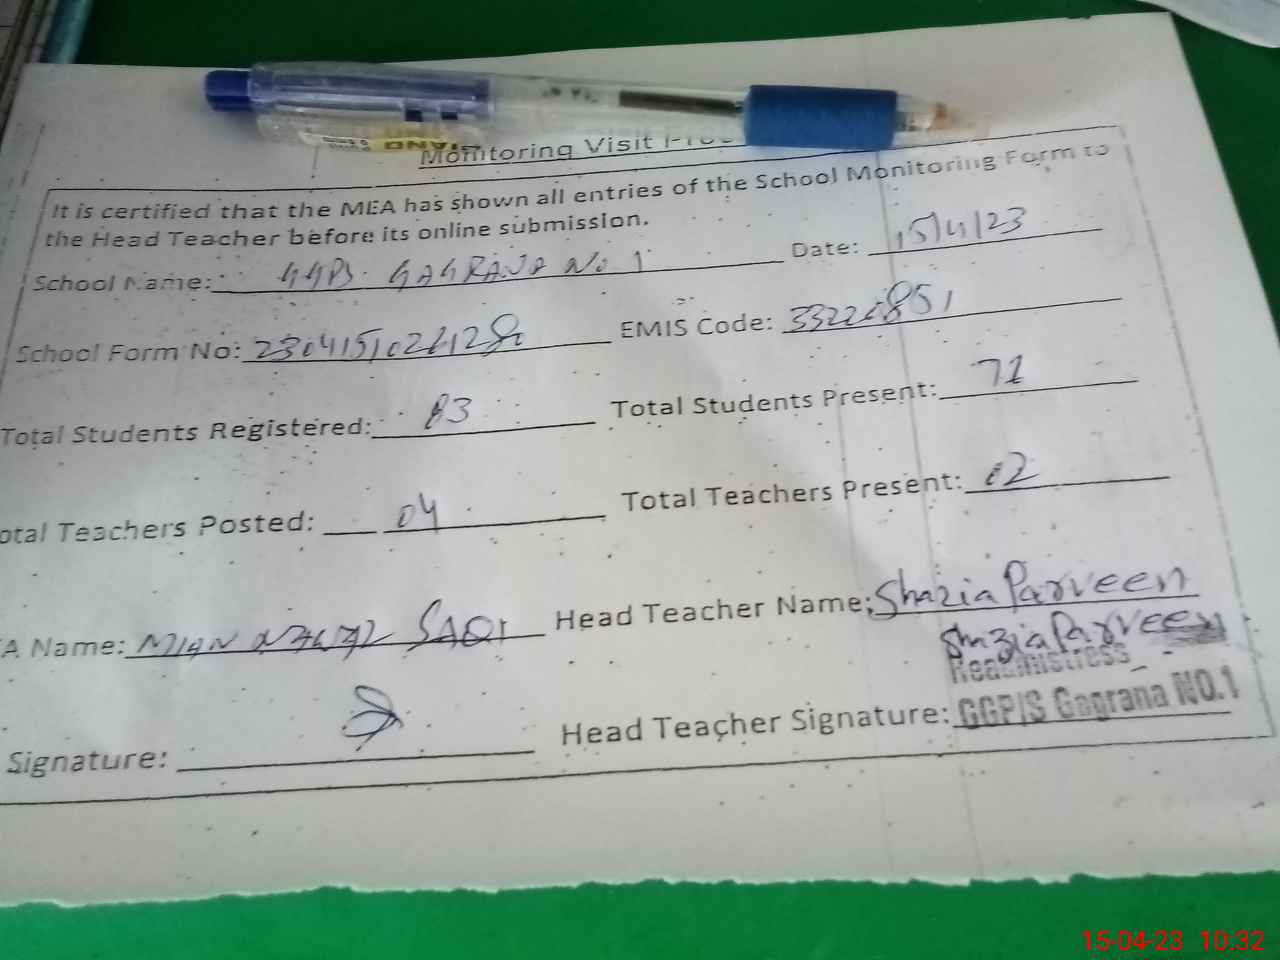 Monitoring Visit
It is certified that the MEA has shown all entries of the School Monitoring Form to
the Head Teacher before its online submission.
School Name: GGPS. GAGRANA No 1 Date: 15/4/23
School Form No: EMIS Code:
Total Students Registered: 83 Total Students Present: 71
otal Teachers Posted: 04 Total Teachers Present: 02
A Name: MIAN SAQI Head Teacher Name: Shazia Parveen
Shazia Parveen
Headmistress
Signature: Head Teacher Signature: GGP/S Gagrana NO.1
15-04-23 10:32